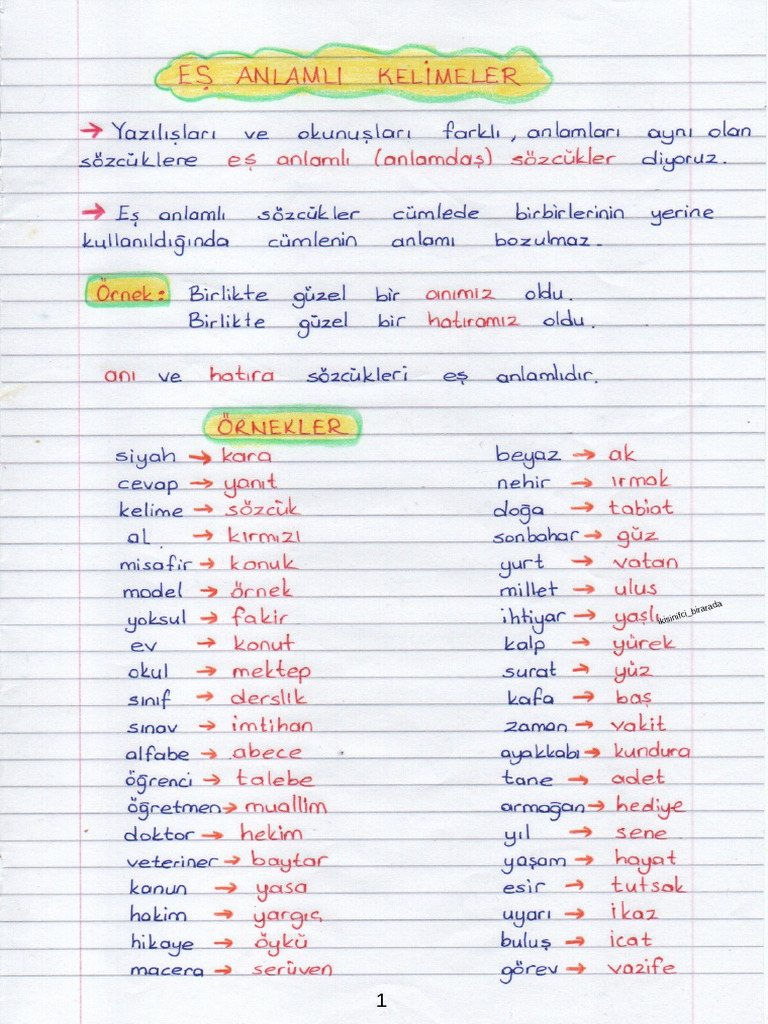 EŞ ANLAMLI KELİMELER
→ Yazılışları ve okunuşları farklı, anlamları aynı olan
sözcüklere eş anlamlı (anlamdaş) sözcükler diyoruz.
→ Eş anlamlı sözcükler cümlede birbirlerinin yerine
kullanıldığında cümlenin anlamı bozulmaz.
Örnek: Birlikte güzel bir anımız oldu.
Birlikte güzel bir hatıramız oldu.
anı ve hatıra sözcükleri eş anlamlıdır.
ÖRNEKLER
siyah → kara
cevap → yanıt
kelime → sözcük
al → kırmızı
misafir → konuk
model → örnek
yoksul → fakir
ev → konut
okul → mektep
sınıf → derslik
sınav → imtihan
alfabe → abece
öğrenci → talebe
öğretmen → muallim
doktor → hekim
veteriner → baytar
kanun → yasa
hakim → yargıç
hikaye → öykü
macera → serüven
beyaz → ak
nehir → ırmak
doğa → tabiat
sonbahar → güz
yurt → vatan
millet → ulus
ihtiyar → yaşlı
ikisinifci_birarada
kalp → yürek
surat → yüz
kafa → baş
zaman → vakit
ayakkabı → kundura
tane → adet
armağan → hediye
yıl → sene
yaşam → hayat
esir → tutsak
uyarı → ikaz
buluş → icat
görev → vazife
1